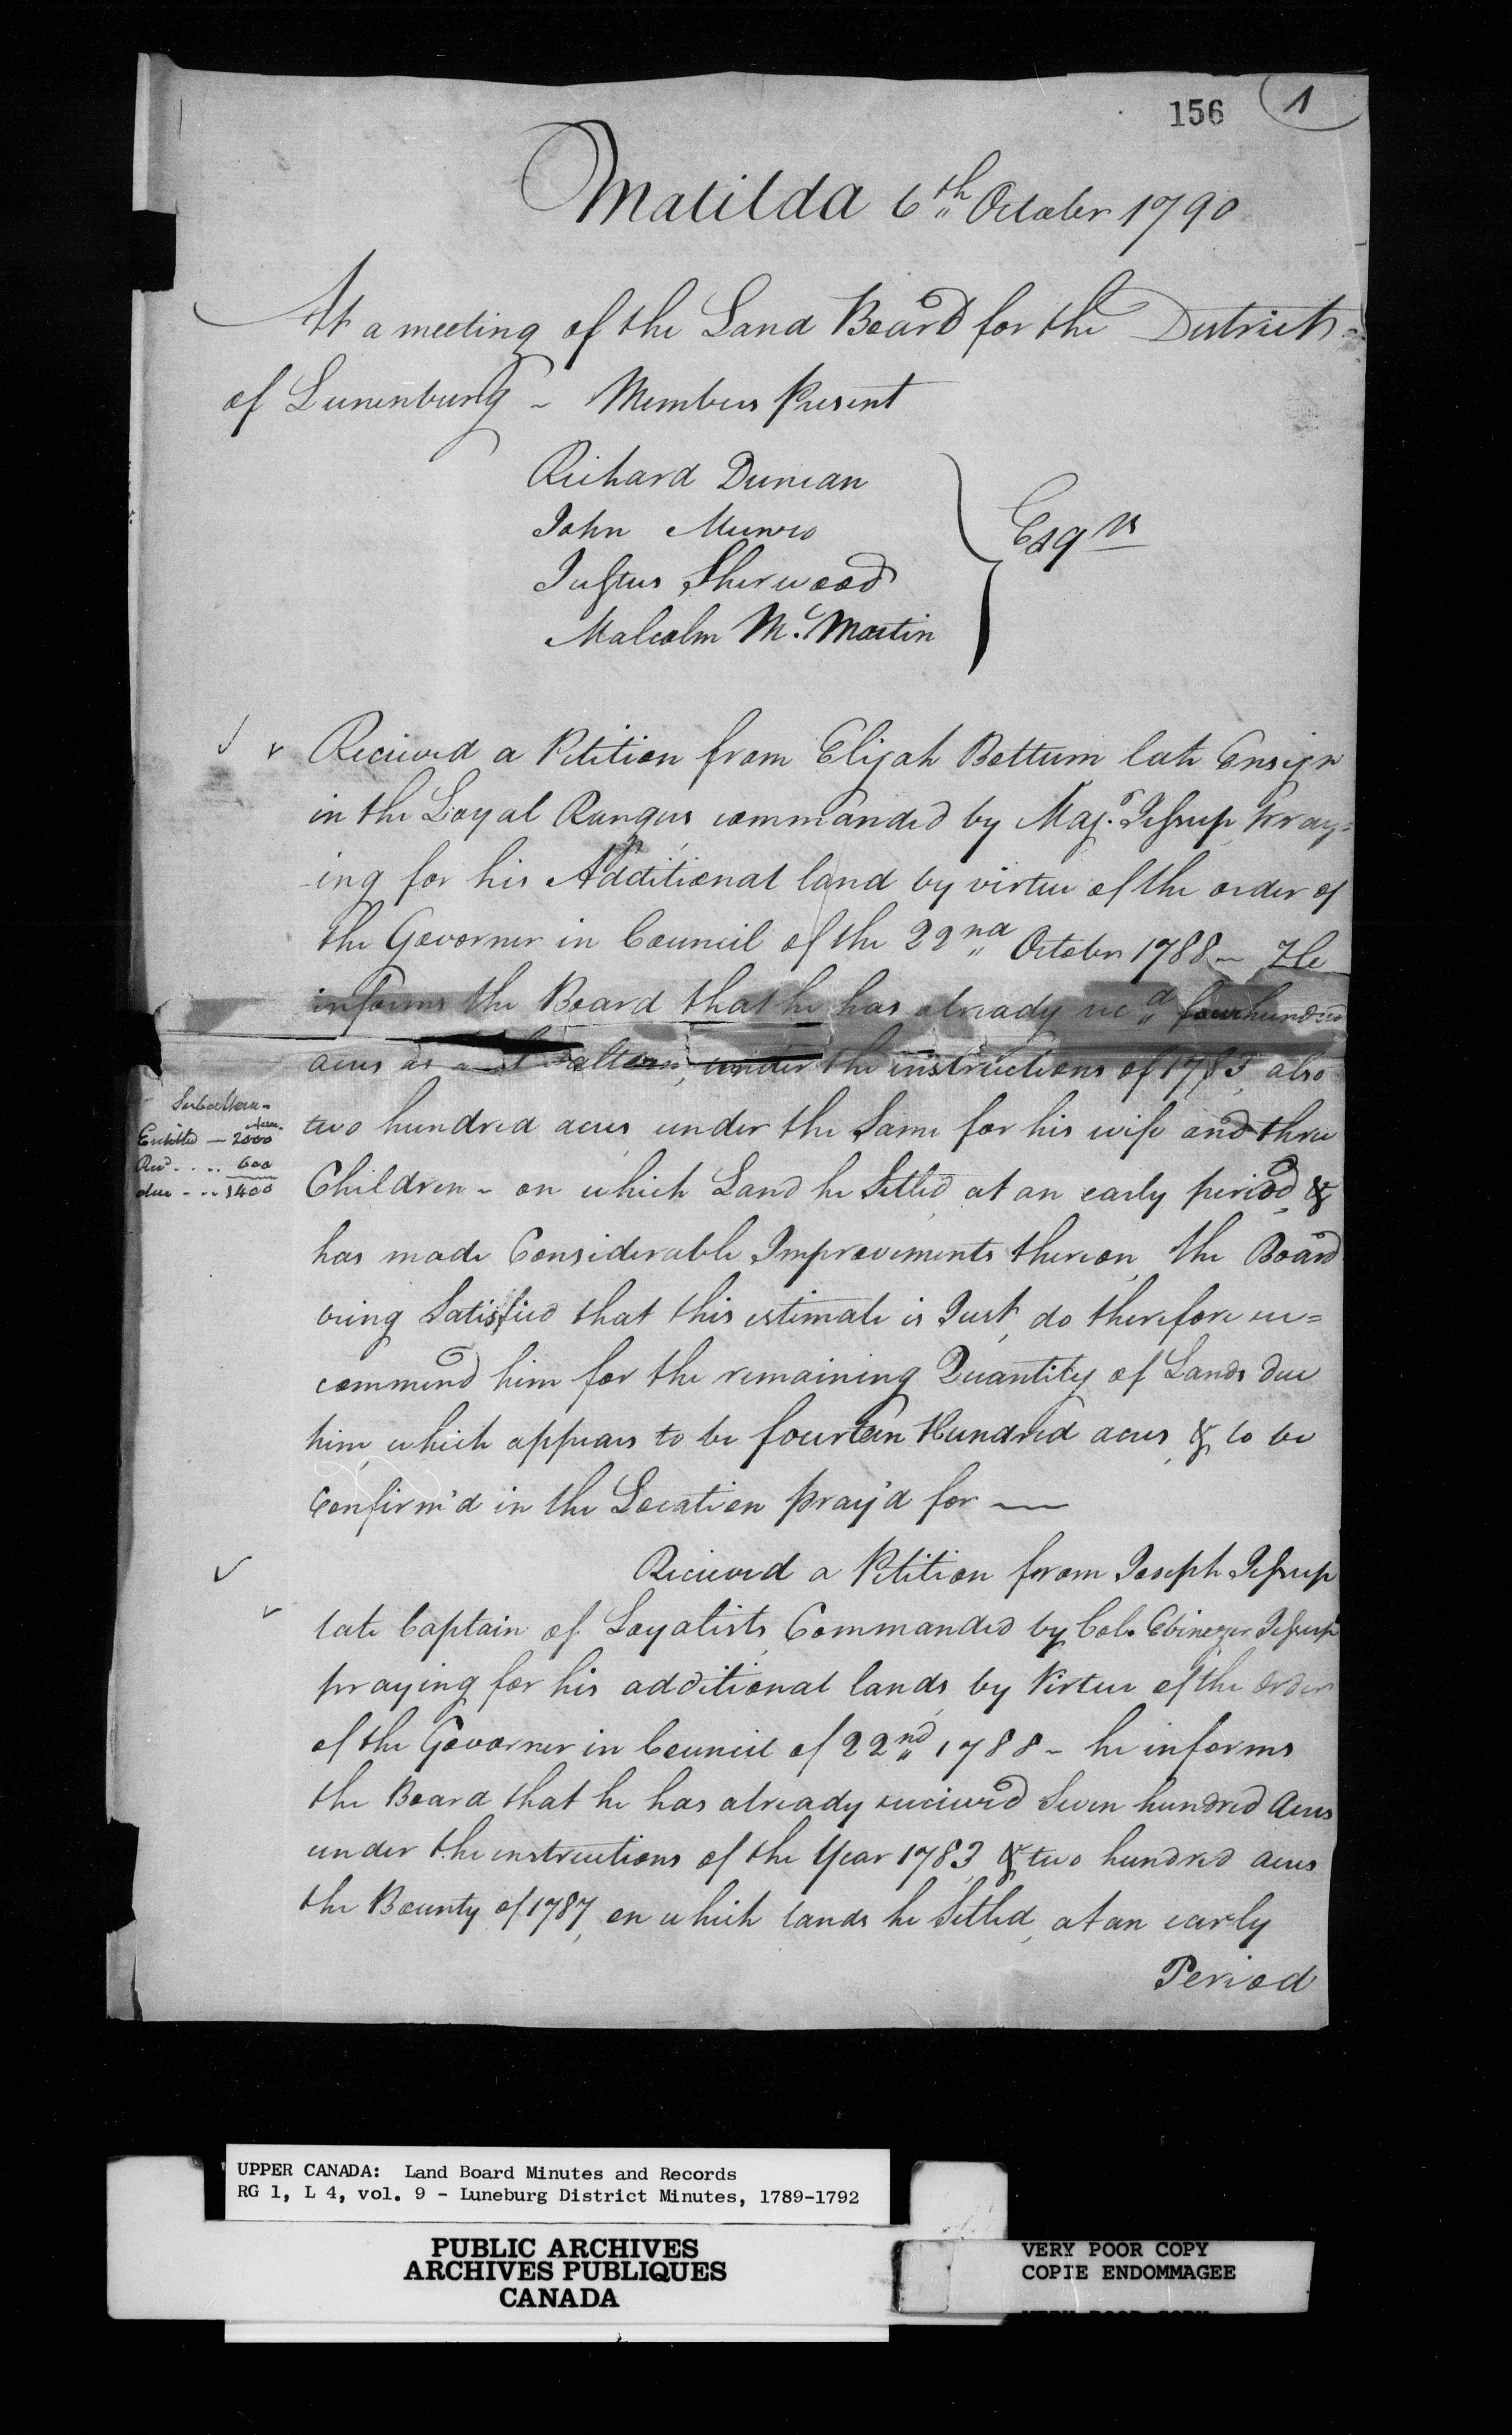 156 1
Matilda 6th October 1790
At a meeting of the Land Board for the District
of Lunenburg - Members Present
Richard Duncan
John Munro
Justus Sherwood
Malcolm Mc. Martin
Esqrs
Recieved a Petition from Elijah Bottum late Ensign
in the Loyal Rangers, commanded by Majr. Jessup, Pray=
-ing for his Additional land by virtue of the order of
the Governer in Council of the 22nd October 1788 - He
informs the Board that he has already recd four hundred
acres as a Subaltern, under the instructions of 1783, also
two hundred acres under the Same for his wife and three
Children - on which Land he Setled at an early period, &
has made Considerable Improvements thereon, the Board
being Satisfied that this estimate is Just, do therefore re=
commend him for the remaining Quantity of Lands due
him, which appears to be fourteen Hundred acres, & to be
Confirm'd in the Location pray'd for
Subaltern -
Acres
Entitled - 2000
Recd. . . . 600
due - . . 1400
Recieved a Petition from Joseph Jessup
late Captain of Loyalists, Commanded by Col. Ebinezer Jessup
praying for his additional lands, by Virtue of the order
of the Governer in Council of 22nd 1788 - he informs
the Board that he has already recieved Seven hundred Acres
under the instructions of the Year 1783, & two hundred acres
the Bounty of 1787, on which lands he Setled, at an early
Period
UPPER CANADA: Land Board Minutes and Records
RG 1, L 4, vol. 9 - Luneburg District Minutes, 1789-1792
PUBLIC ARCHIVES
ARCHIVES PUBLIQUES
CANADA
VERY POOR COPY
COPIE ENDOMMAGEE
VERY POOR COPY